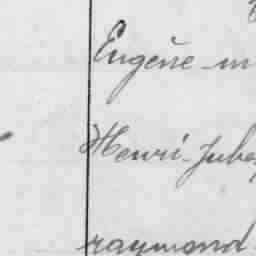 Eugène - m
Henri - Jube
raymond